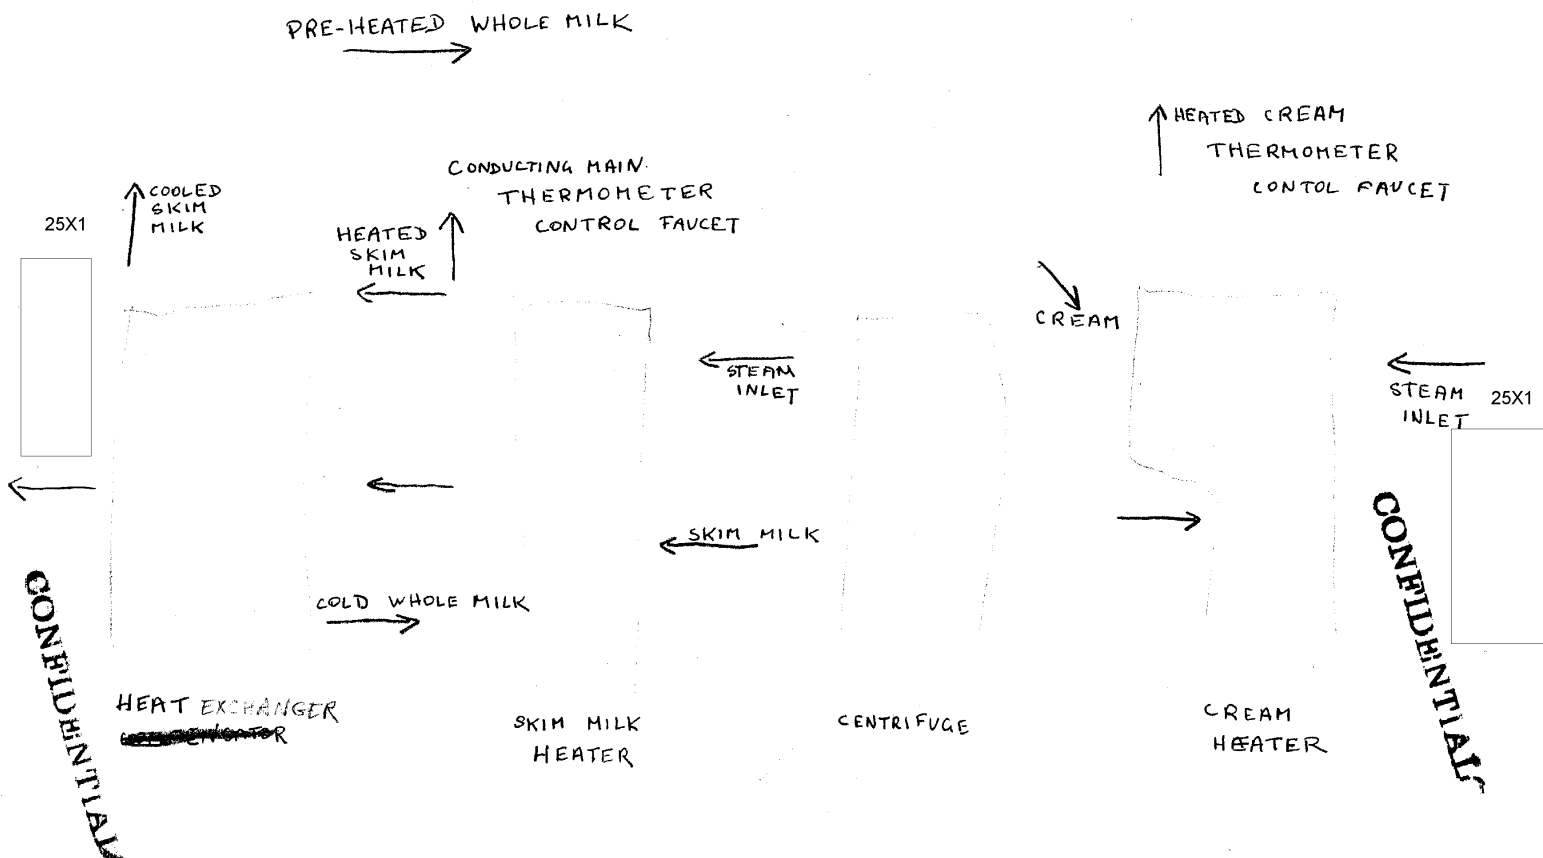 PRE-HEATED WHOLE MILK
HEATED CREAM
THERMOMETER
CONTOL FAUCET
CONDUCTING MAIN.
THERMOMETER
CONTROL FAUCET
COOLED
SKIM
MILK
25X1
HEATED
SKIM
MILK
CREAM
STEAM
INLET
STEAM
INLET
25X1
SKIM MILK
COLD WHOLE MILK
CONFIDENTIAL
CONFIDENTIAL
HEAT EXCHANGER
SKIM MILK
HEATER
CENTRIFUGE
CREAM
HEATER